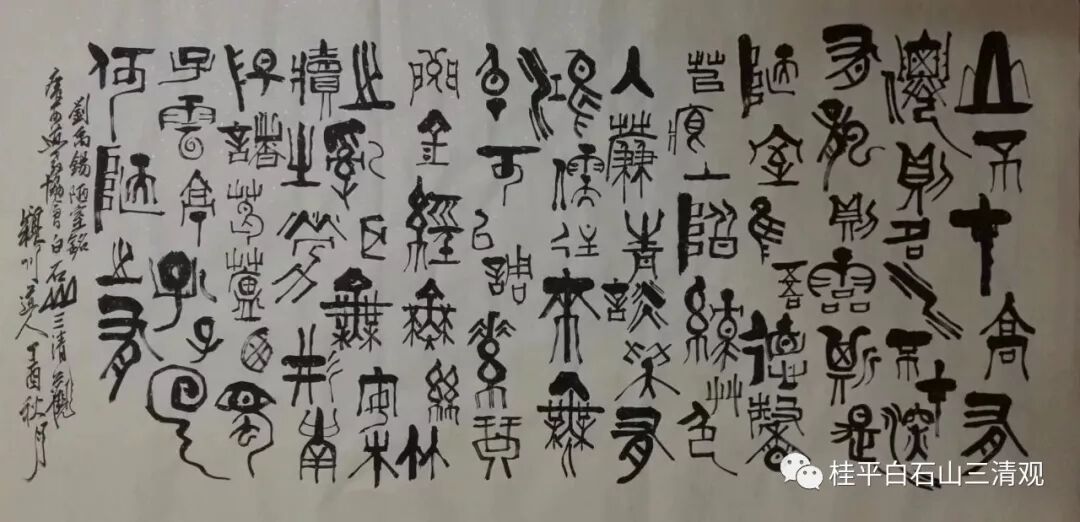 山不在高有
僊則名水不在深
有龍則靈斯是
陋室唯吾德馨
苔痕上階綠艸色
入簾青談笑有
鴻儒往來無
白丁可㠯調素琴
閱金經無絲竹
之亂耳無案
牘之勞形南
陽諸葛廬西蜀
子雲亭孔子云
何陋之有
劉禹錫陋室銘
白石山三清觀
道人丁酉秋月
桂平白石山三清观